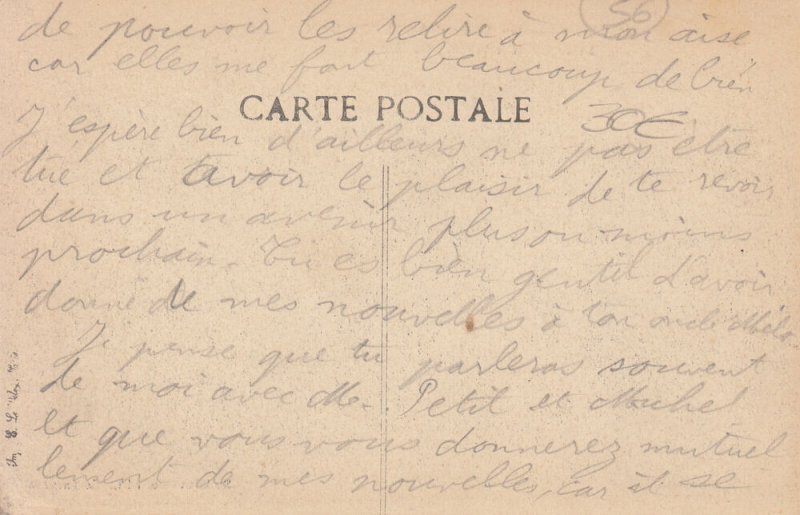 56
de pouvoir les relire à mon aise
car elles me font beaucoup de bien
CARTE POSTALE
30€
J'espère bien d'ailleurs ne pas être
tué et avoir le plaisir de te revoir
dans un avenir plus ou moins
prochain. Tu es bien gentil d'avoir
donné de mes nouvelles à ton oncle
Je pense que tu parleras souvent
de moi avec Me. Petit et Michel
et que vous vous donnerez mutuel
lement de mes nouvelles, car il se